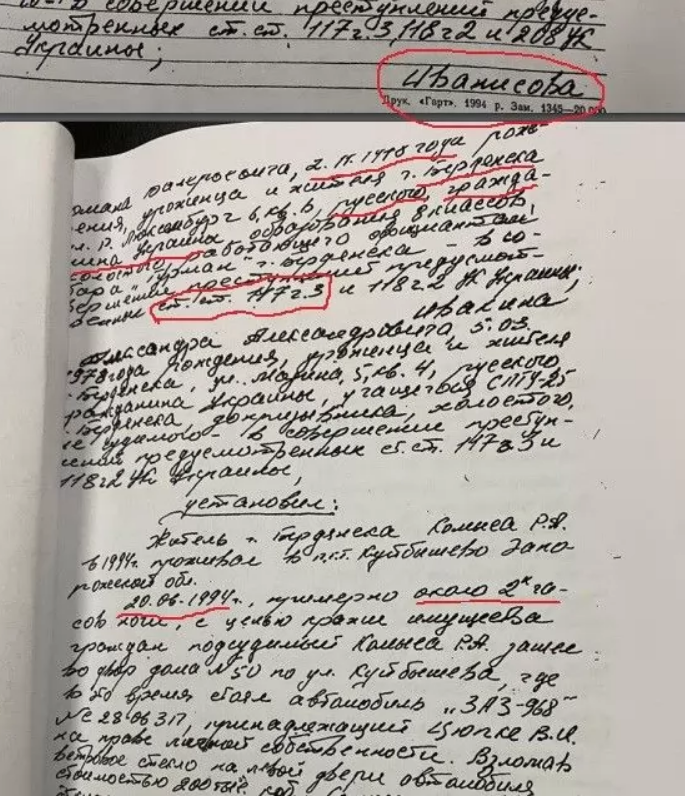 в совершении преступлений предус-
мотренных ст. ст. 117 ч. 3, 118 ч 2 и 208 УК
Украины;
Иванисова
Друк. «Гарт». 1994 р. Зам. 1345—20 000
Валерьевича, 2. 1978 года рож-
ения, уроженца и жителя г. Бердянска
Р. Люксембург 6, кв. 6, русского, гражда-
нина Украины, образования 8 классов,
холостого, работающего официантом
бара г. Бердянска - в со-
вершении преступлений предусмот-
ренных ст. ст. 117 ч. 3 и 118 ч 2 УК Украины;
Ивакина
Александра Александровича, 5.03.
1978 года рождения, уроженца и жителя
г. Бердянска, ул. 5, кв. 4, русского,
гражданина Украины, учащегося СПТУ-25
г. Бердянска, допризывника, холостого,
не судимого - в совершении преступ-
лений предусмотренных ст. ст. 117 ч. 3 и
118 ч 2 УК Украины,
установил:
Житель г. Бердянска Р.А.
в 1994г. проживал в п.г.т. Куйбышево Запо-
рожской обл.
20.06.1994г., примерно около 2х ча-
сов ночи, с целью кражи имущества
граждан подсудимый Р.А. зашел
во двор дома №50 по ул. Куйбышева, где
в то время стоял автомобиль „ЗАЗ-968"
№ принадлежащий В.И.
на праве личной собственности. Взломав
ветровое стекло на левой двери автомобиля
стоимостью